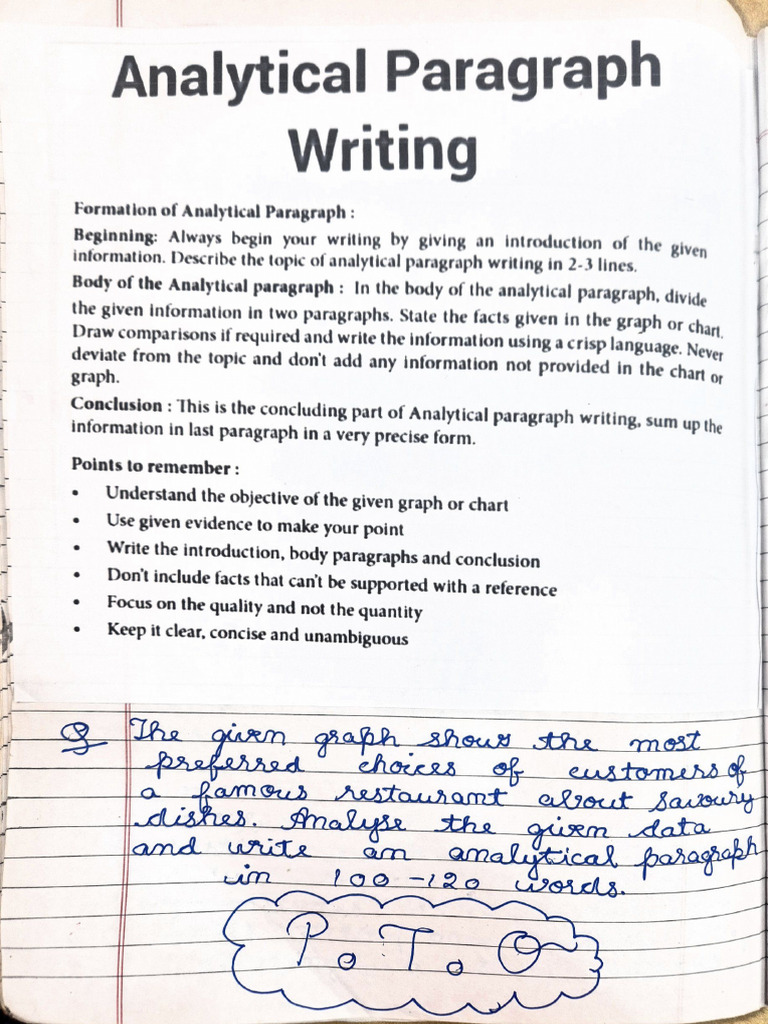 Analytical Paragraph
Writing
Formation of Analytical Paragraph :
Beginning: Always begin your writing by giving an introduction of the given
information. Describe the topic of analytical paragraph writing in 2-3 lines.
Body of the Analytical paragraph : In the body of the analytical paragraph, divide
the given information in two paragraphs. State the facts given in the graph or chart.
Draw comparisons if required and write the information using a crisp language. Never
deviate from the topic and don't add any information not provided in the chart or
graph.
Conclusion : This is the concluding part of Analytical paragraph writing, sum up the
information in last paragraph in a very precise form.
Points to remember :
• Understand the objective of the given graph or chart
• Use given evidence to make your point
• Write the introduction, body paragraphs and conclusion
• Don't include facts that can't be supported with a reference
• Focus on the quality and not the quantity
• Keep it clear, concise and unambiguous
Q The given graph shows the most
preferred choices of customers of
a famous restaurant about savoury
dishes. Analyse the given data
and write an analytical paragraph
in 100-120 words.
P.T.O